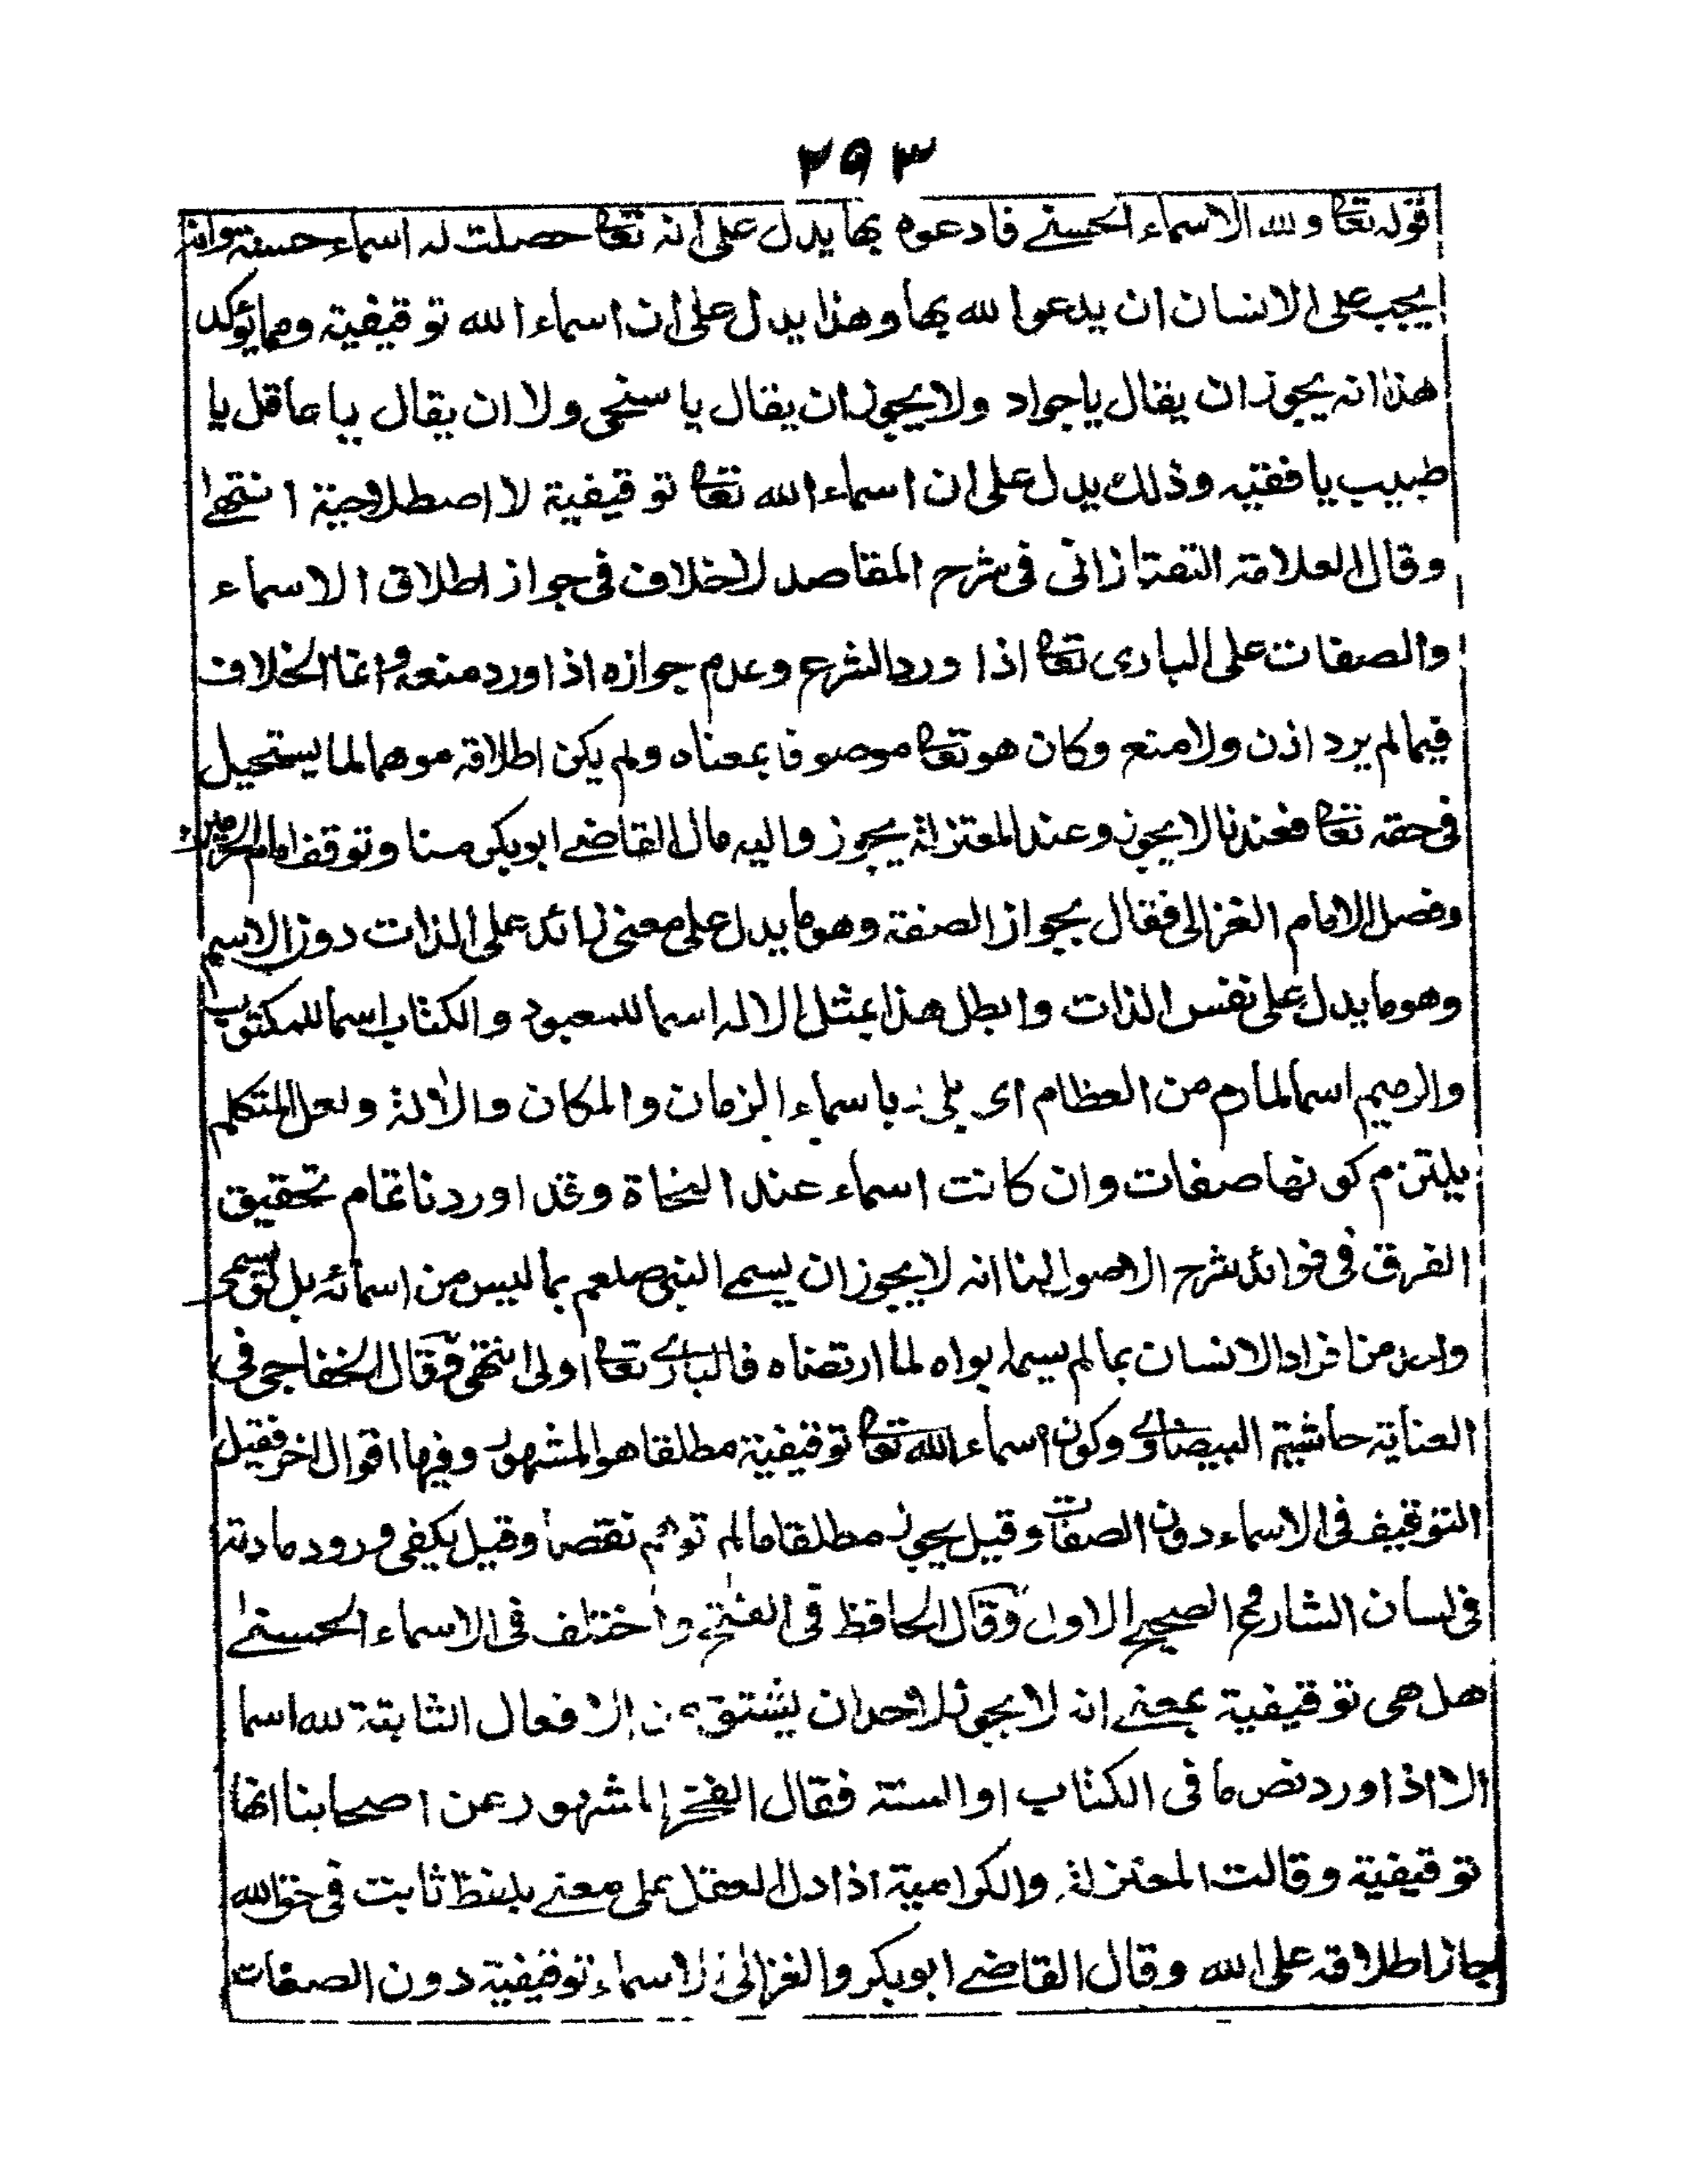 ٢٩٣
قوله تعالى ولله الاسماء الحسنے فادعوه بها يدل على انه تعالى حصلت له اسماء حسنة وانه
يجب على الانسان ان يدعوا لله بها وهذا يدل على ان اسماء الله توقيفية ومما يؤكد
هذا انه يجوز ان يقال ياجواد ولا يجوز ان يقال يا سخى ولا ان يقال يا عاقل يا
طبيب يا فقيه وذلك يدل على ان اسماء الله تعالى توقيفية لا اصطلاحية انتهى
وقال العلامة التفتازانى فى شرح المقاصد لاخلاف فى جواز اطلاق الاسماء
والصفات على البارى تعالى اذا ورد الشرع وعدم جوازه اذا ورد منعه وانما الخلاف
فيما لم يرد اذن ولا منع وكان هو تعالى موصوفا بمعناه ولم يكن اطلاقه موهما لما يستحيل
فى حقه تعالى فعندنا لا يجوز وعند المعتزلة يجوز واليه مال القاضے ابوبكر منا وتوقف امام الحرمين
وفصل الامام الغزالى فقال بجواز الصفة وهو ما يدل على معنى زائد على الذات دون الاسم
وهو ما يدل على نفس الذات وابطل هذا بمثل الاله اسما للمعبود والكتاب اسما للمكتوب
والرميم اسما لما رم من العظام اى بلى باسماء الزمان والمكان والالة ولعل المتكلم
يلتزم كونها صفات وان كانت اسماء عند النحاة وقد اوردنا تمام تحقيق
الفرق فى فوائد شرح الاصول لنا انه لا يجوز ان يسمے النبى صلعم بما ليس من اسمائه بل لو سمى
واحد من افراد الانسان بما لم يسمه ابواه لما ارتضاه فالبارے تعالى اولى انتهى وقال الخفاجى فى
العناية حاشية البيضاوے وكون اسماء الله تعالى توقيفية مطلقا هو المشهور وفيها اقوال اخر فقيل
التوقيف فى الاسماء دون الصفات وقيل يجوز مطلقا ما لم توهم نقصا وقيل يكفى ورود مادته
فى لسان الشارع والصحيح الاول وقال الحافظ فى الفتح واختلف فى الاسماء الحسنے
هل هى توقيفية بمعنے انه لا يجوز لاحد ان يشتق من الافعال الثابتة لله اسما
الا اذا ورد نص ما فى الكتاب او السنة فقال الفخر المشهور عن اصحابنا انها
توقيفية وقالت المعتزلة والكرامية اذا دل العقل على معنے بلفظ ثابت فى حق الله
جاز اطلاقه على الله وقال القاضے ابوبكر والغزالى الاسماء توقيفية دون الصفات